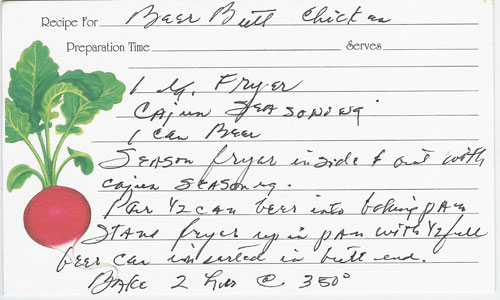 Recipe For Beer Butt Chicken
Preparation Time Serves
1 lg. Fryer
Cajun Seasoning
1 can Beer
Season fryer inside & out with
cajun seasong.
Pour 1/2 can beer into baking pan
Stand fryer up in pan with 1/2 full
beer can inserted in butt end.
Bake 2 hrs @ 350°